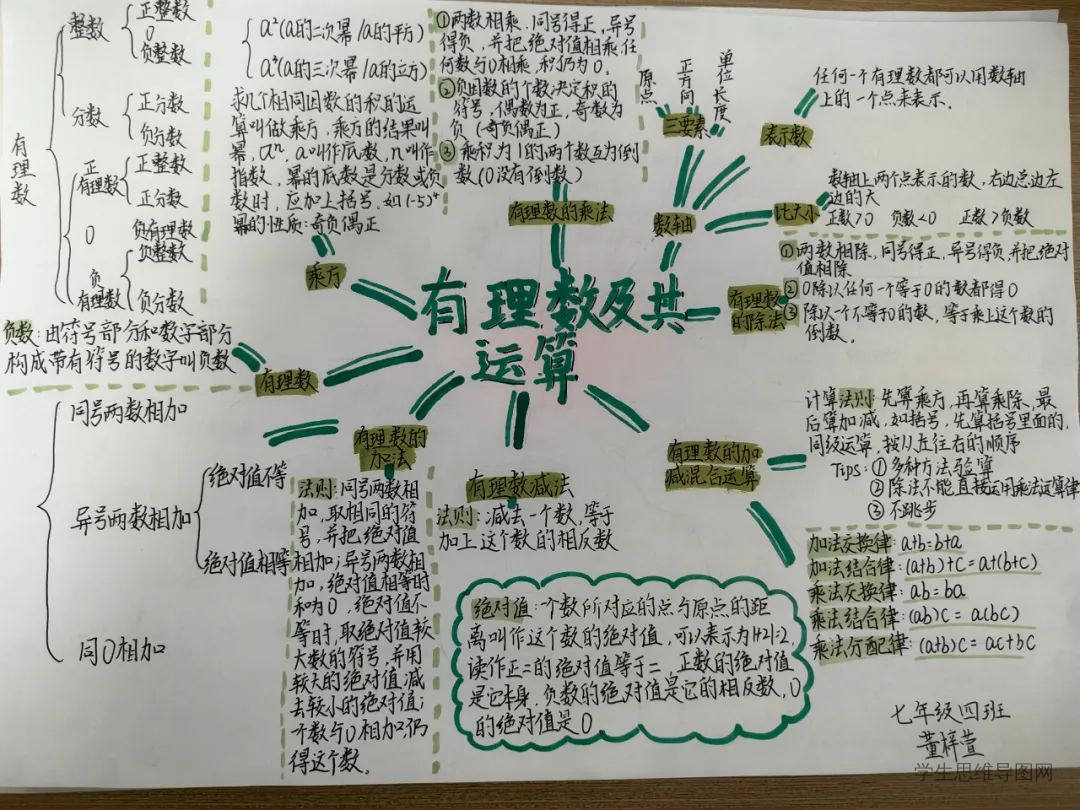 有理数及其
运算
有理数
整数
正整数
0
负整数
分数
正分数
负分数
正
有理数
正整数
正分数
0
负
有理数
负有理数
负整数
负分数
负数:由符号部分和数字部分
构成带有符号的数字叫负数
有理数
a²(a的二次幂/a的平方)
a³(a的三次幂/a的立方)
求几个相同因数的积的运
算叫做乘方,乘方的结果叫
幂,aⁿ,a叫作底数,n叫作
指数,幂的底数是分数或负
数时,应加上括号,如(-5)⁴
幂的性质:奇负偶正
乘方
①两数相乘,同号得正,异号
得负,并把绝对值相乘任
何数与0相乘,积仍为0。
②负因数的个数决定积的
符号,偶数为正,奇数为
负(奇负偶正)
③乘积为1的两个数互为倒
数(0没有倒数)
有理数的乘法
原点
正方向
单位长度
三要素
数轴
表示数
任何一个有理数都可以用数轴
上的一个点来表示。
比大小
数轴上两个点表示的数,右边总边左
边的大
正数>0 负数<0 正数>负数
有理数
的除法
①两数相除,同号得正,异号得负,并把绝对
值相除
②0除以任何一个等于0的数都得0
③除以一个不等于0的数,等于乘上这个数的
倒数。
有理数的加
减混合运算
计算法则:先算乘方,再算乘除,最
后算加减,如括号,先算括号里面的,
同级运算,按从左往右的顺序
Tips:①多种方法验算
②除法不能直接运用乘法运算律
③不跳步
加法交换律:a+b=b+a
加法结合律:(a+b)+c=a+(b+c)
乘法交换律:ab=ba
乘法结合律:(ab)c=a(bc)
乘法分配律:(a+b)c=ac+bc
有理数的
加法
同号两数相加
异号两数相加
绝对值不等
绝对值相等
同0相加
法则:同号两数相
加,取相同的符
号,并把绝对值
相加;异号两数相
加,绝对值相等时
和为0,绝对值不
等时,取绝对值较
大数的符号,并用
较大的绝对值减
去较小的绝对值;
一个数与0相加仍
得这个数。
有理数减法
法则:减去一个数,等于
加上这个数的相反数
绝对值:一个数所对应的点与原点的距
离叫作这个数的绝对值,可以表示为|+2|=2,
读作正二的绝对值等于二,正数的绝对值
是它本身,负数的绝对值是它的相反数,0
的绝对值是0
七年级四班
董梓萱
学生思维导图网